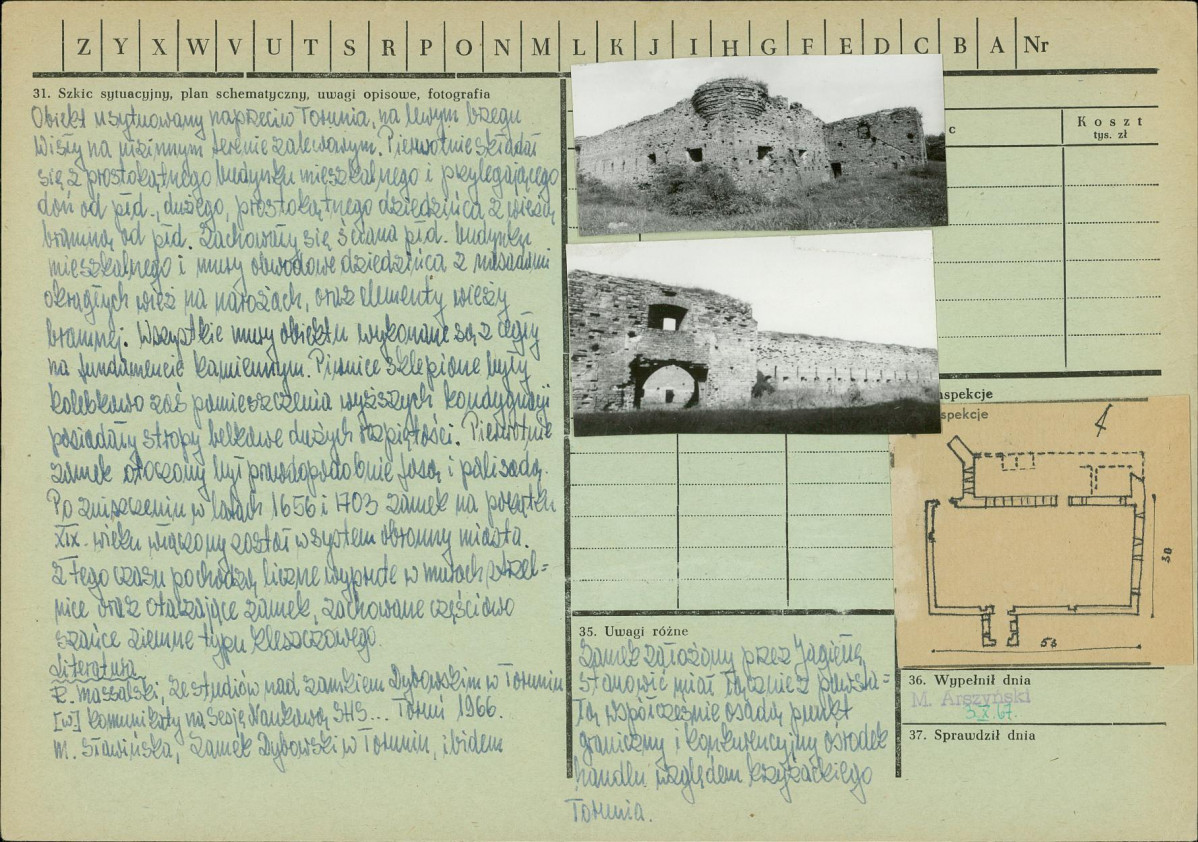 Z Y X W V U T S R P O N M L K J I H G F E D C B A Nr
31. Szkic sytuacyjny, plan schematyczny, uwagi opisowe, fotografia
Obiekt usytuowany naprzeciw Torunia, na lewym brzegu
Wisły na nizinnym terenie zalewowym. Pierwotnie składał
się z prostokątnego budynku mieszkalnego i przylegającego
doń od płd., dużego, prostokątnego dziedzińca z wieżą
bramną od płd. Zachowały się ściana płd. budynku
mieszkalnego i mury obwodowe dziedzińca z nasadami
okrągłych wież na narożach, oraz elementy wieży
bramnej. Wszystkie mury obiektu wykonane są z cegły
na fundamencie kamiennym. Piwnice sklepione były
kolebkowo zaś pomieszczenia wyższych kondygnacji
posiadały stropy belkowe dużych rozpiętości. Pierwotnie
zamek otoczony był prawdopodobnie fosą i palisadą.
Po zniszczeniu w latach 1656 i 1703 zamek na początku
XIX-wieku włączony został w system obronny miasta.
Z tego czasu pochodzą liczne wyprute w murach strzel=
nice oraz otaczające zamek, zachowane częściowo
szańce ziemne typu kleszczowego.
Literatura
R. Massalski, Ze studiów nad zamkiem Dybowskim w Toruniu
[w] Komunikaty na Sesję Naukową SHS... Toruń 1966.
M. Sławińska, Zamek Dybowski w Toruniu, ibidem
c
Koszt
tys. zł
nspekcje
spekcje
38
53
35. Uwagi różne
Zamek założony przez Jagiełłę
stanowić miał łącznie z powsta=
łą współcześnie osadą punkt
graniczny i konkurencyjny ośrodek
handlu względem krzyżackiego
Torunia.
36. Wypełnił dnia
M. Arszyński
37. Sprawdził dnia